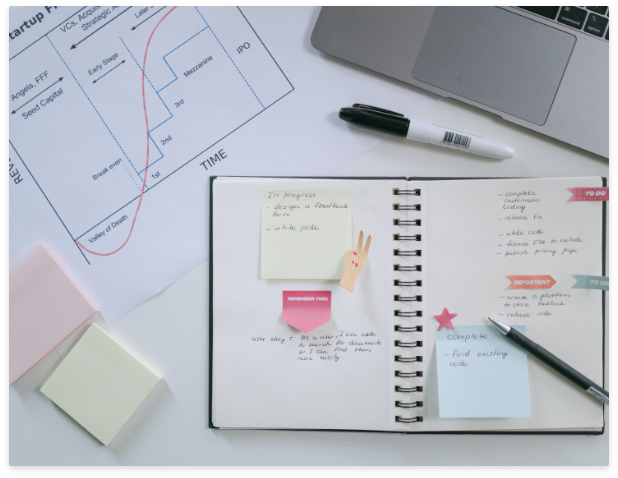 Startup Fi
VCs, Acqui
Strategic A
Later
Early Stage
Angels, FFF
Seed Capital
Mezzanine
IPO
3rd
2nd
1st
Break even
TIME
Valley of Death
RE
In progress
- design a feedback
form
- write code
REMEMBER THIS:
User story 1: As a user, I am able
to search for documents
so I can find them
more easily
- complete
automatic
testing
- release fix
- write code
- discuss CTA to include
- publish pricing page
TO DO
IMPORTANT
TO DO
- create a platform
to store feedback
- release code
complete
- find existing
code